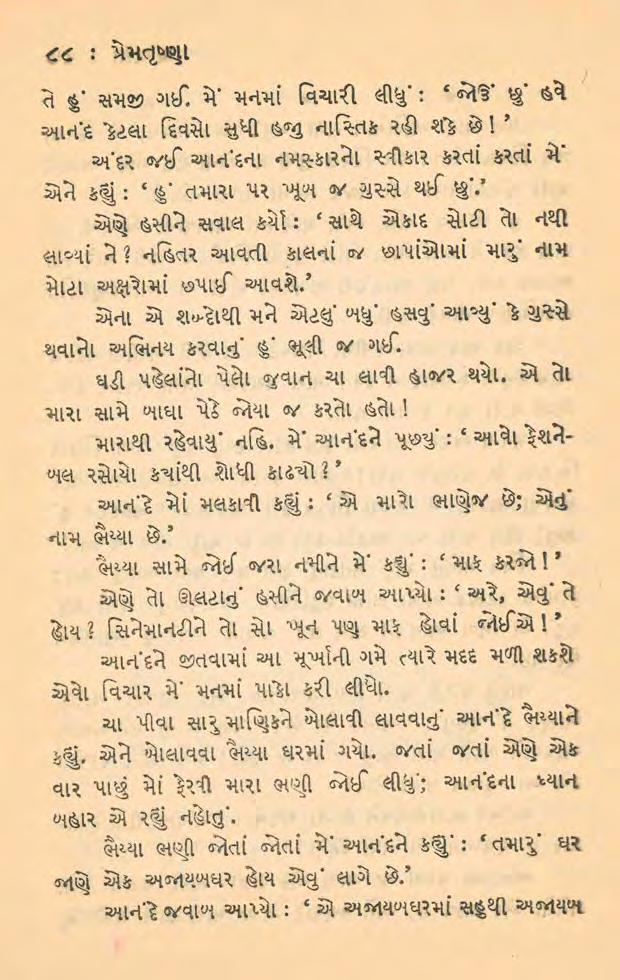 ૮૮ : પ્રેમતૃષ્ણા
તે હું સમજી ગઈ. મેં મનમાં વિચારી લીધું : ‘ જોઉં છું હવે
આનંદ કેટલા દિવસો સુધી હજુ નાસ્તિક રહી શકે છે ! ’
અંદર જઈ આનંદના નમસ્કારનો સ્વીકાર કરતાં કરતાં મેં
એને કહ્યું : ‘ હું તમારા પર ખૂબ જ ગુસ્સે થઈ છું.’
એણે હસીને સવાલ કર્યો : ‘ સાથે એકાદ સોટી તો નથી
લાવ્યાં ને ? નહિતર આવતી કાલનાં જ છાપાંઓમાં મારું નામ
મોટા અક્ષરોમાં છપાઈ આવશે.’
એના એ શબ્દોથી મને એટલું બધું હસવું આવ્યું કે ગુસ્સે
થવાનો અભિનય કરવાનું હું ભૂલી જ ગઈ.
ઘડી પહેલાંનો પેલો જુવાન ચા લાવી હાજર થયો. એ તો
મારા સામે બાઘા પેઠે જોયા જ કરતો હતો !
મારાથી રહેવાયું નહિ. મેં આનંદને પૂછ્યું : ‘ આવો ફેશને-
બલ રસોયો કયાંથી શોધી કાઢયો ? ’
આનંદે મોં મલકાવી કહ્યું : ‘ એ મારો ભાણેજ છે; એનું
નામ ભૈય્યા છે.’
ભૈય્યા સામે જોઈ જરા નમીને મેં કહ્યું : ‘ માફ કરજો ! ’
એણે તો ઊલટાનું હસીને જવાબ આપ્યો : ‘ અરે, એવું તે
હોય ? સિનેમાનટીને તો સો ખૂન પણ માફ હોવાં જોઈએ ! ’
આનંદને જીતવામાં આ મૂર્ખાની ગમે ત્યારે મદદ મળી શકશે
એવો વિચાર મેં મનમાં પાકો કરી લીધો.
ચા પીવા સારુ માણિકને બોલાવી લાવવાનું આનંદે ભૈય્યાને
કહ્યું. એને બોલાવવા ભૈય્યા ઘરમાં ગયો. જતાં જતાં એણે એક
વાર પાછું મોં ફેરવી મારા ભણી જોઈ લીધું; આનંદના ધ્યાન
બહાર એ રહ્યું નહોતું.
ભૈય્યા ભણી જોતાં જોતાં મેં આનંદને કહ્યું : ‘ તમારું ઘર
જાણે એક અજાયબઘર હોય એવું લાગે છે.’
આનંદે જવાબ આપ્યો : ‘ એ અજાયબઘરમાં સહુથી અજાયબ